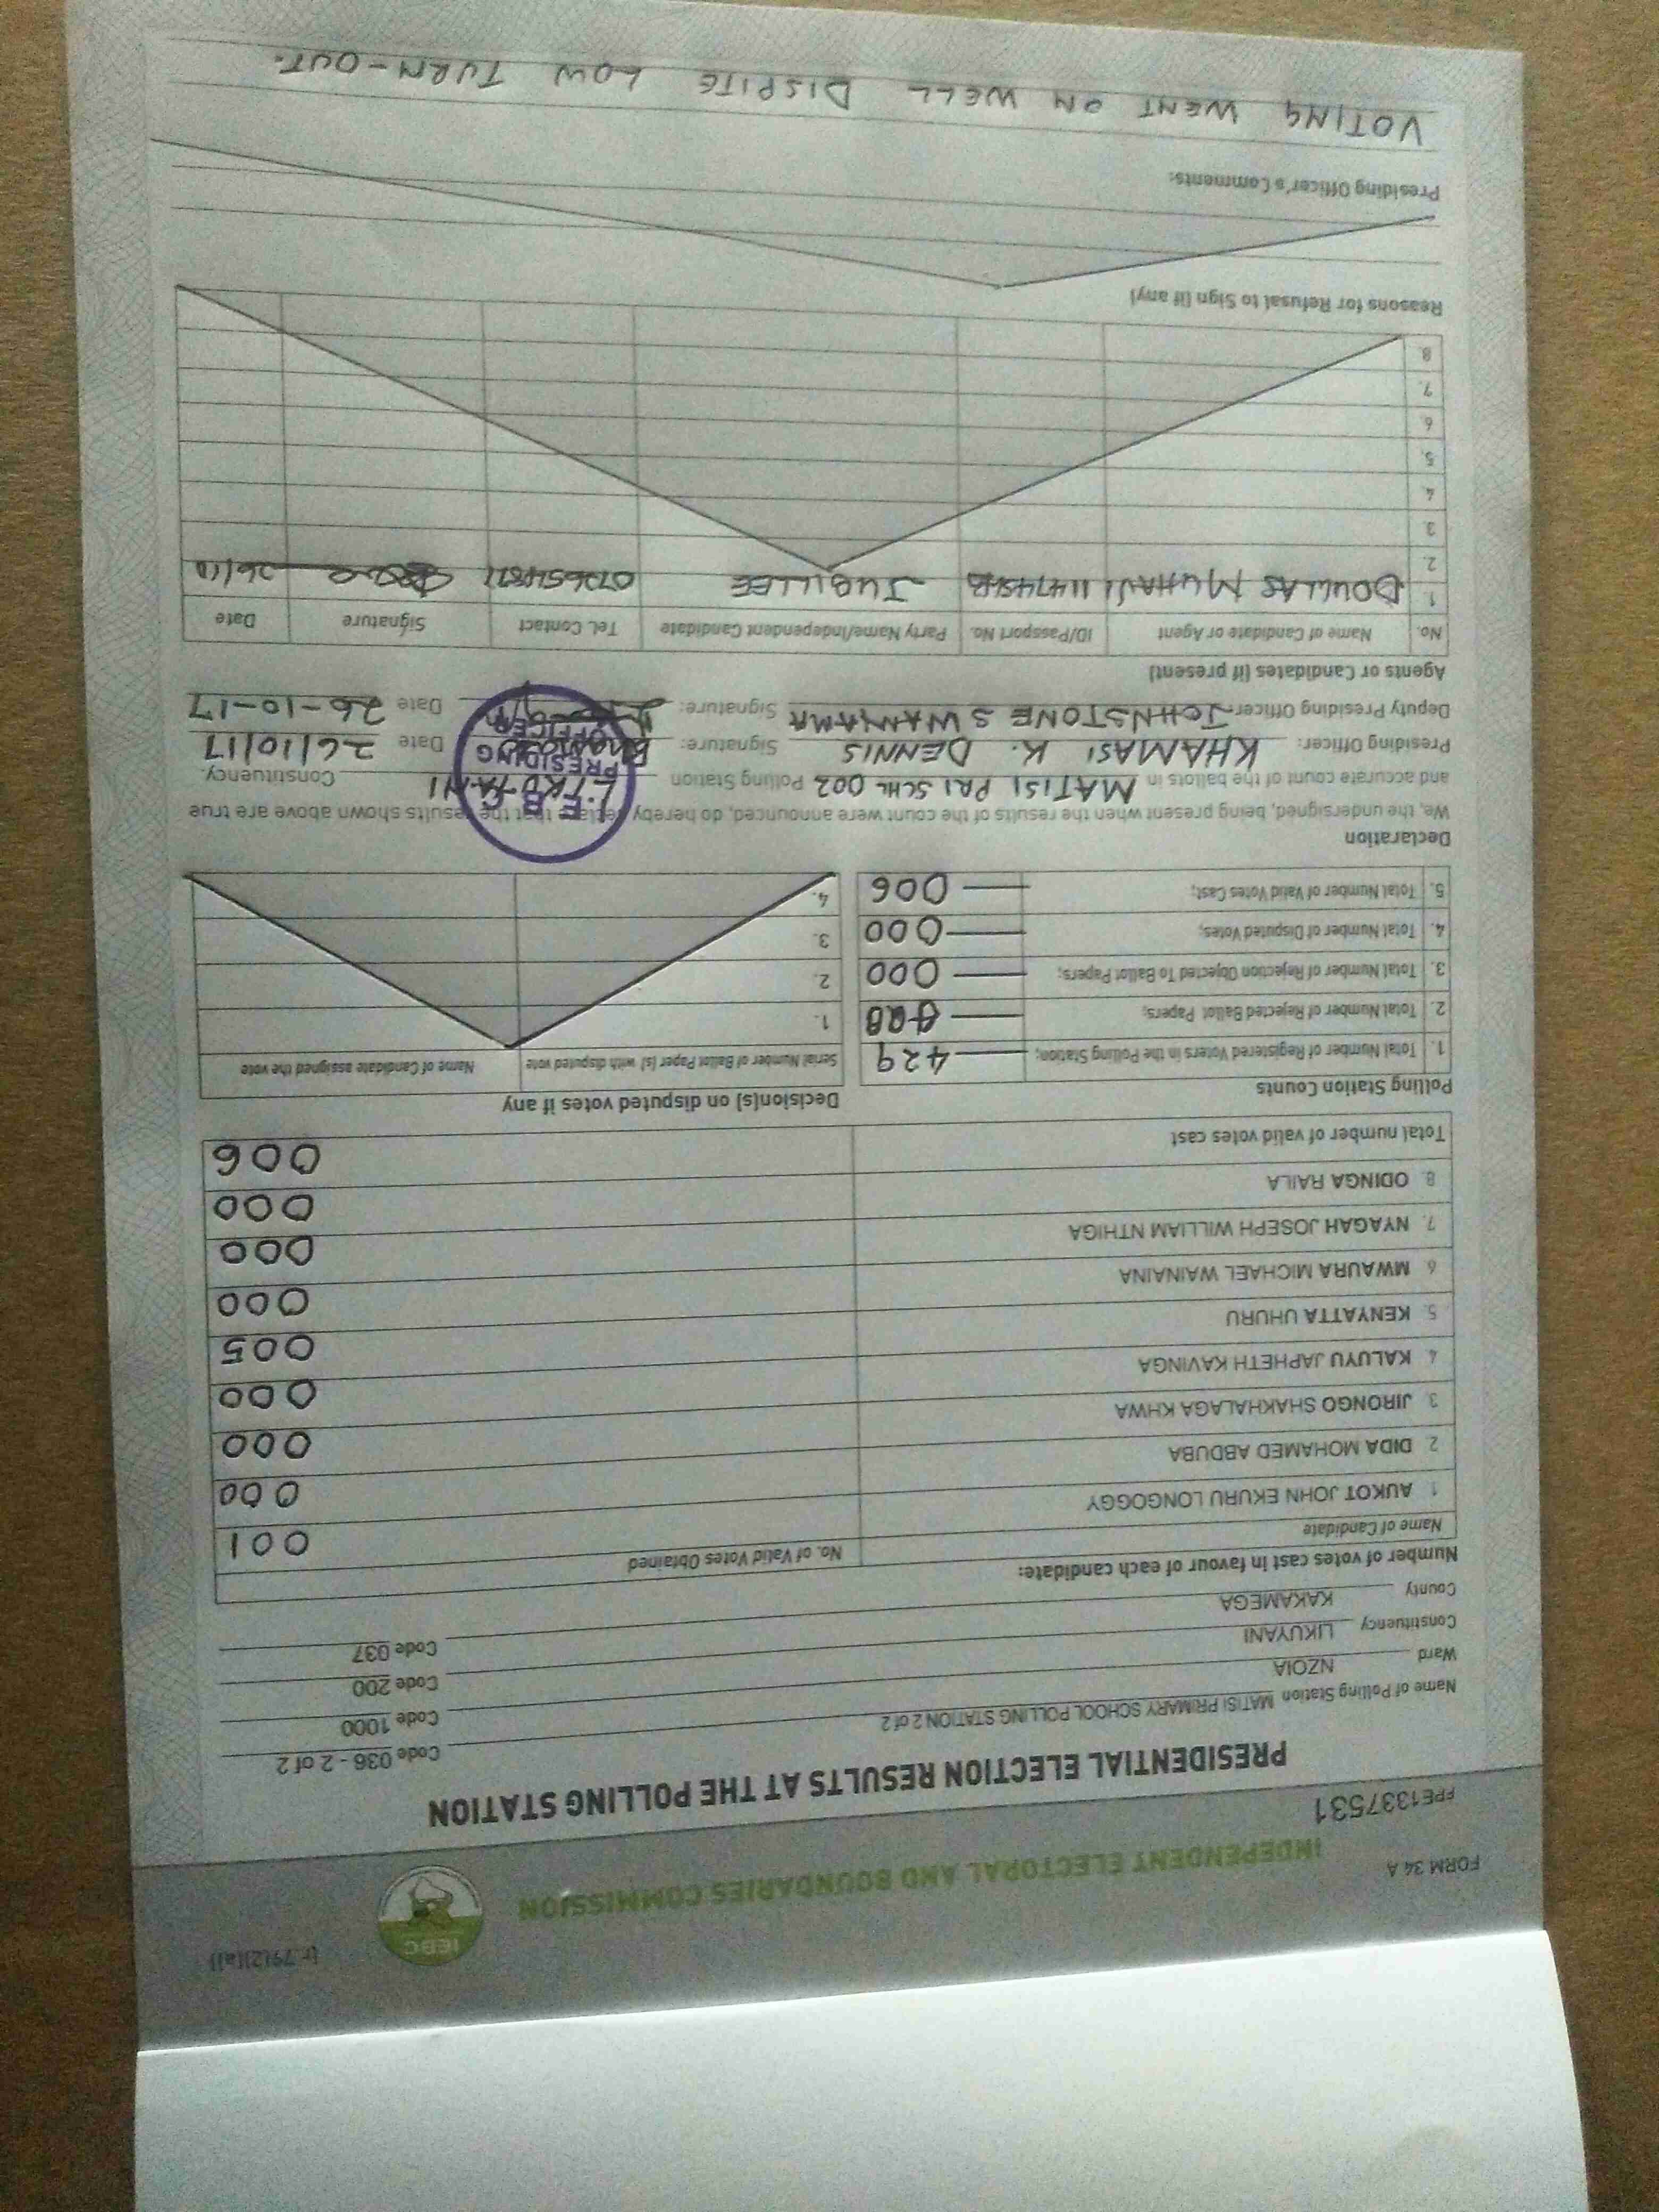 (r.79(2)(a))
IEBC
FORM 34 A
INDEPENDENT ELECTORAL AND BOUNDARIES COMMISSION
FPE1337531
PRESIDENTIAL ELECTION RESULTS AT THE POLLING STATION
Name of Polling Station MATISI PRIMARY SCHOOL POLLING STATION 2 of 2 Code 036 - 2 of 2
Ward NZOIA Code 1000
Constituency LIKUYANI Code 200
County KAKAMEGA Code 037
Number of votes cast in favour of each candidate:
Name of Candidate No. of Valid Votes Obtained
1 AUKOT JOHN EKURU LONGOGGY 001
2 DIDA MOHAMED ABDUBA 000
3 JIRONGO SHAKHALAGA KHWA 000
4 KALUYU JAPHETH KAVINGA 000
5. KENYATTA UHURU 005
6 MWAURA MICHAEL WAINAINA 000
7. NYAGAH JOSEPH WILLIAM NTHIGA 000
8. ODINGA RAILA 000
Total number of valid votes cast 006
Polling Station Counts
1. Total Number of Registered Voters in the Polling Station; 429
2. Total Number of Rejected Ballot Papers;
3. Total Number of Rejection Objected To Ballot Papers; 000
4. Total Number of Disputed Votes; 000
5. Total Number of Valid Votes Cast; 006
Decision(s) on disputed votes if any
Serial Number of Ballot Paper (s) with disputed vote Name of Candidate assigned the vote
1.
2.
3.
4.
Declaration
We, the undersigned, being present when the results of the count were announced, do hereby declare that the results shown above are true
and accurate count of the ballots in MATISI PRI SCHL 002 Polling Station Constituency.
Presiding Officer: KHAMASI K. DENNIS Signature: Date 26/10/17
Deputy Presiding Officer JOHNSTONE S WANJAMA Signature: Date 26-10-17
I.E.B.C
PRESIDING
OFFICER
Agents or Candidates (if present)
No. Name of Candidate or Agent ID/Passport No. Party Name/Independent Candidate Tel. Contact Signature Date
1 DOUGLAS JUBILLEE 26/10
2.
3
4
5.
6
7.
8
Reasons for Refusal to Sign (if any)
Presiding Officer's Comments:
VOTING WENT ON WELL DISPITE LOW TURN-OUT.